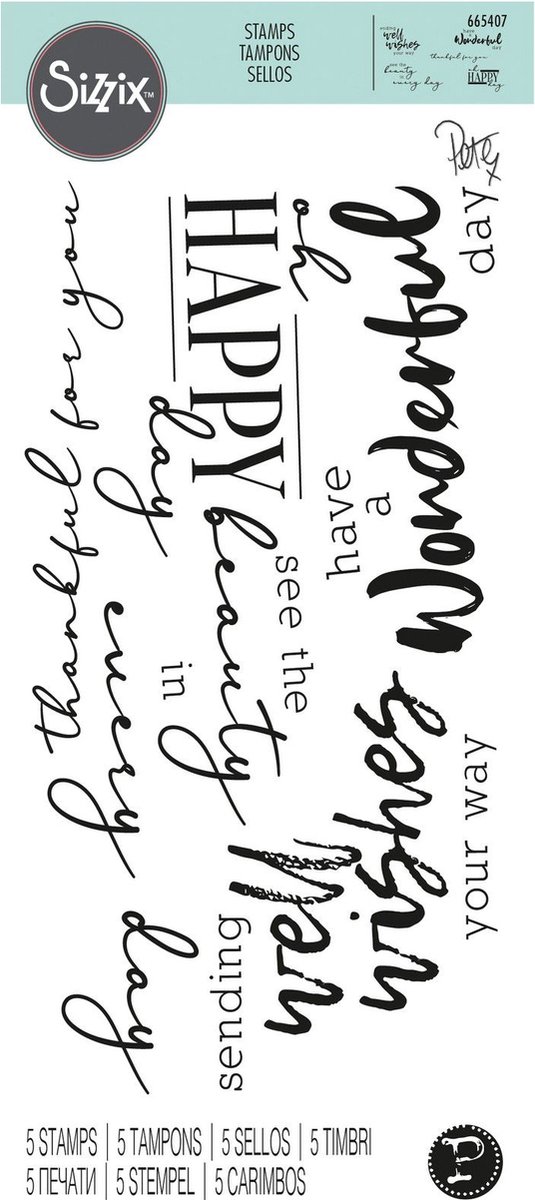 Sizzix™
STAMPS
TAMPONS
SELLOS
665407
sending
well
wishes
your way
have
a
Wonderful
day
thankful for you
see the
beauty
in
every day
oh
HAPPY
day
Pete x
thankful for you
oh
HAPPY
day
have
a
Wonderful
day
see the
beauty
in
every
day
sending
Well
wishes
your way
5 STAMPS | 5 TAMPONS | 5 SELLOS | 5 TIMBRI
5 ПЕЧАТИ | 5 STEMPEL | 5 CARIMBOS